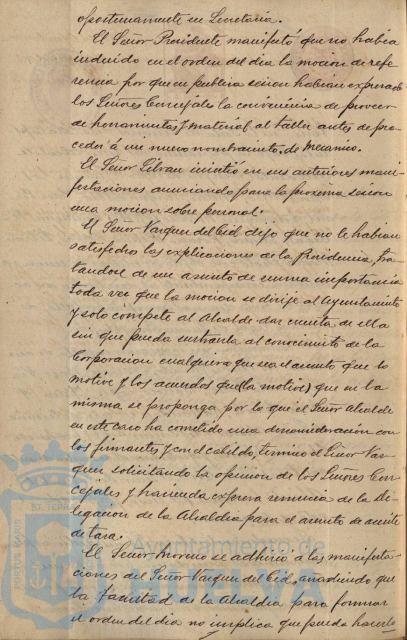 oportunamente en Secretaria.
El Señor Presidente manifestó que no habia
incluido en el orden del dia la mocion de refe
rencia por que en publica sesion habian expresado
los Señores Concejales la conveniencia de proveer
de herramientas y material al taller antes de pro
ceder á un nuevo nombramto. de mecanico.
El Señor insistió en sus anteriores mani-
festaciones anunciando para la proxima sesion
una mocion sobre personal.
El Señor Vazquez del Cid dijo que no le habian
satisfecho las explicaciones de la Presidencia, tra
tandose de un asunto de suma importancia
toda vez que la mocion se dirije al Ayuntamiento
y solo compete al Alcalde dar cuenta de ella
sin que pueda sustraerla al conocimiento de la
Corporacion cualquiera que sea el asunto que lo
motive y los acuerdos que (la motive) que en la
misma se proponga por lo que el Señor Alcalde
en este caso ha cometido una desconsideracion con
los firmantes y con el cabildo, termino el Señor Vaz
quez solicitando la opinion de los Señores Con
cejales y haciendo expresa renuncia de la De-
legacion de la Alcaldia para el asunto de aceite
de tasa.
El Señor Moreno se adhirió á las manifesta-
ciones del Señor Vazquez del Cid, añadiendo que
la facultad de la Alcaldia para formar
el orden del dia no implica que pueda hacerlo
Ayuntamiento de
PORTUS MARIS ET TERRAE